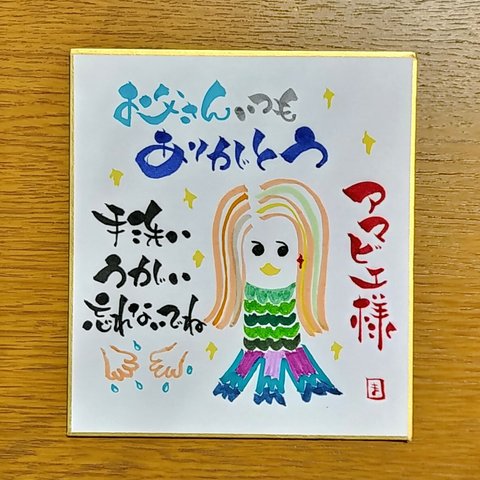 お父さんいつも
ありがとう
アマビエ様
手洗い
うがい
忘れないでね
ま